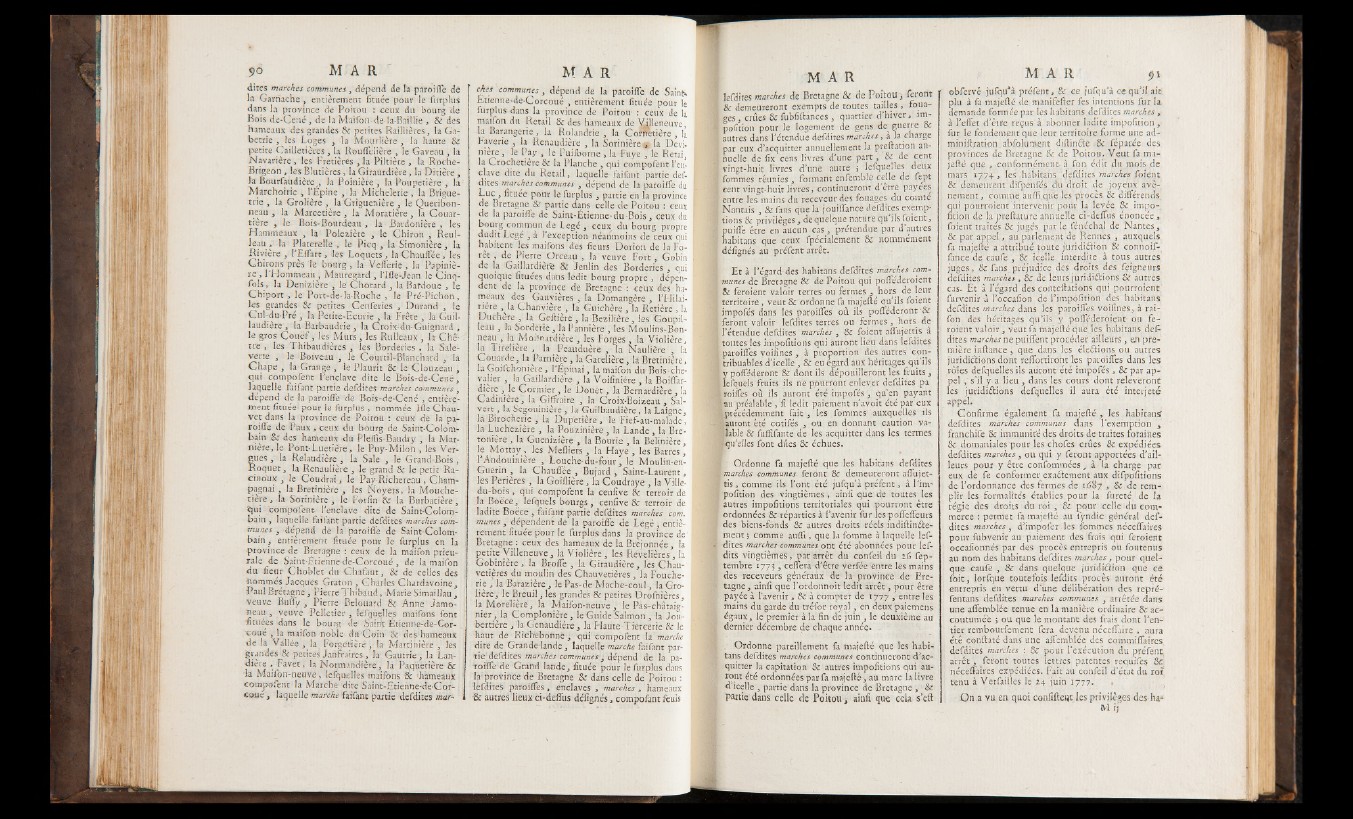 90 M A R
dites marches communes, dépend de la paroiſſe de
la Garnache, entièrement ſituée pour le ſurplus
dans la province de Poitou : ceux du bourg de
Bois-de-Cené, de la Maiſon-de-la-Baillie, & des
hameaux des grandes & petites Raillières, la Ga-
betrie, les Loges, la Mourlière, la haute &
petite Cailletières, la Rouſſelière, le Gaveau, la
Navarière, les Fretières, la Piltière, la Roche-
Brigeon, les Blutières, la Giraurdière, la Ditière,
la Bourfaudière, la Poinière, la Poupetière, la
Marchoitie, l'Epine, la Michelette, la Brigue-
trie, la Grolière, la Griguenière, le Queribon-
neau, la Marcetière, la Moratière, la Couar-
tière, le Bois-Bourdeau, la Bardonière, les
Hammeaux, la Polezière, le Chiron, Reul-
leau, la Platerelle, le Picq, la Simonière, la
Rivière, l'Eſſart, les Loquets, la Chauffée, les
Chirons près le bourg, la Veſſerie, la Papiniè-
re, l'Hommeau, Mauregard, l'Iſle-Jean le Cinq-
ſols, la Denizière, le Chorard, la Bardoue, le
Chiport, le Port-de-la-Roche, le Pré-Pichon,
les grandes & petites Cenſeries, Durand, le
Cul-du-Pré, la Petite-Ecurie, la Frête, la Guil-
laudière, la Barbaudrie, la Croix-du-Guignard,
le gros Couëf, les Murs, les Rulleaux, la Chê-
tre, les Thibaudières, les Borderies, la Sale-
verte, le Boiveau, le Courtil-Blanchard, la
Chape, la Grange, le Plauris & le Clouzeau,
qui compoſent l'enclave dite le Bois-de-Cené,
laquelle faiſant partie deſdites marches communes,
dépend de la paroiſſe de Bois-de-Cené, entière-
ment ſituée pour le ſurplus, nommée Iſle-Chau-
vet dans la province de Poitou : ceux de la pa-
roiſſe de Paux, ceux du bourg de Saint-Colom-
bain & des hameaux du Pleſſis-Bauday, la Mar-
nière, le Pont-Luetière, le Puy-Milon, les Ver-
gues, la Relaudière, la Sale, le Grand-Bois,
Roquet, la Renaulière, le grand & le petit Ra-
cinoux, le Coudrai, le Pay-Richereau, Cham-
pagnai, la Bretinière, les Noyers, la Mouche-
tière, la Sorinière, le Poiſin & la Burbatière,
qui compoſent l'enclave dite de Saint-Colom-
bain, laquelle faiſant partie deſdites marches com-
munes, dépend de la paroiſſe de Saint-Colom-
bain, entièrement ſituée pour le ſurplus en la
province de Bretagne : ceux de la maiſon prieu-
rale de Saint-Etienne-de-Corcoué, de la maiſon
du ſieur Choblet du Chafaut, & de celles des
nommés Jacques Graton, Charles Chardavoine,
Paul Brétagne, Pierre Thibaud, Marie Simaillau,
veuve Buſſy, Pierre Belouard & Anne Jamo-
neau, veuve Pelletier, leſquelles maiſons ſont
ſituées dans le bourg de Saint Etienne-de-Cor-
coué, la maiſon noble du Coin & des hameaux
de la Vallée, la Forgetière, la Martinière, les
grandes & petites Janfraires, la Gautrie, la Lan-
dière, Favet, la Normandière, la Paquetière &
la Maiſon-neuve, leſquelles maiſons & hameaux
compoſent la Marche dite Saint-Etienne-de-Cor-
coué, laquelle marche faiſant partie deſdites mar-
M A R
ches communes, dépend de la paroiſſe de Saint-
Etienne-de-Corcoué, entièrement ſituée pour le
ſurplus dans la province de Poitou : ceux de la
maiſon du Retail & des hameaux de Villeneuve,
la Barangerie, la Rolandrie, la Cornetière, la
Faverie, la Renaudière, la Sorinière, la Devi-
nière, le Pay, le Puiſborne, la Fuye, le Retai,
la Crochetière & la Planche, qui compoſent l'en-
clave dite du Retail, laquelle faiſant partie deſ-
dites marches communes, dépend de la paroiſſe du
Luc, ſituée pour le ſurplus, partie en la province
de Bretagne & partie dans celle de Poitou : ceux
de la paroiſſe de Saint-Etienne-du-Bois, ceux du
bourg commun de Legé, ceux du bourg propre
dudit Legé, à l'exception néanmoins de ceux qui
habitent les maiſons des ſieurs Dorion de la Fo-
rêt, de Pierre Orceau, la veuve Foſt, Gobin
de la Gaillardière & Jenlin des Borderies, qui
quoique ſituées dans ledit bourg propre, dépen-
dent de la province de Bretagne : ceux des ha-
meaux des Gauvières, la Domangère, l'Hilai-
rière, la Chanvière, la Guichère, la Retière, la
Duchère, la Geſtière, la Bezilière, les Goupil-
leau, la Sorderie, la Pannière, les Moulins-Bon-
neau, la Moinardière, les Forges, la Violière,
la Tirelière, la Feauduère, la Naulière, la
Couarde, la Parnière, la Garelière, la Bretinière,
la Goiſchonière, l'Epinai, la maiſon du Bois-che-
valier, la Gaillardière, la Voiſinière, la Boiſſar-
dière, le Cormier, le Douet, la Bernardière, la
Cadinière, la Giffraire, la Croix-Boizeau, Sal-
vert, la Segouinière, la Guilbaudière, la Laigne,
la Birocherie, la Dupetière, le Fief-au-malade,
la Luchezière, la Pouzinière, la Lande, la Bre-
tonière, la Guenizière, la Bourie, la Belinière,
le Mottay, les Meſliers, la Haye, les Barres,
l'Andouinière, Louche-du-four, le Moulin-en-
Guerin, la Chauſſée, Bujard, Saint-Laurent,
les Perières, la Goiſlière, la Coudraye, la Ville-
du-bois, qui compoſent la cenſive & terroir de
la Boëce, leſquels bourgs, cenſive & terroir de
ladite Boëce, faiſant partie deſdites marches com-
munes, dépendent de la paroiſſe de Legé, entiè-
rement ſituée pour le ſurplus dans la province de
Bretagne : ceux des hameaux de la Bretonnée, la
petite Villeneuve, la Violière, les Revelières, la
Gobinière, la Broſſe, la Giraudière, les Chau-
vetières du moulin des Chauvetières, la Fouche-
rie, la Barazière, le Pas-de Mache-coul, la Gro-
lière, le Breuil, les grandes & petites Droſnières,
la Morelière, la Maiſon-neuve, le Pas-châtaig-
nier, la Complonière, le Guide Salmon, la Jou-
bertière, la Genaudière, la Haute-Tiercerie & le
haut de Richebonne, qui compoſent la marche
dire de Grande-lande, laquelle marche faiſant par-
tie deſdites marches communes, dépend de la pa-
roiſſe de Grand lande, ſituée pour le ſurplus dans
la province de Bretagne & dans celle de Poitou :
leſdites paroiſſes, enclaves, marches, hameaux
& autres lieux ci-deſſus déſignés, compoſant ſeuls
M A R
leſdites marches de Bretagne & de Poitou, ſeront
& demeureront exempts de toutes tailles, foua-
ges, crûes & ſubſiſtances, quartier d'hiver, im-
poſition pour le logement de gens de guerre &
autres dans l'étendue deſdites marches, à la charge
par eux d'acquitter annuellement la preſtation an-
nuelle de ſix cens livres d'une part, & de cent
vingt-huit livres d'une autre ; leſquelles deux
ſommes réunies, formant enſemble celle de ſept
cent vingt-huit livres, continueront d'être payées
entre les mains du receveur des fouages du comté
Nantais, & ſans que la jouiſſance deſdites exemp-
tions & privilèges, de quelque nature qu'ils ſoient,
puiſſe être en aucun cas, prétendue par d'autres
habitans que ceux ſpécialement & nommément
déſignés au préſent arrêt.
Et à l'égard des habitans deſdites marches com-
munes de Bretagne & de Poitou qui poſſéderoient
& feroient valoir terres ou fermes, hors de leur
territoire, veut & ordonne ſa majeſté qu'ils ſoient
impoſés dans les paroiſſes où ils poſſéderont &
feront valoir leſdites terres ou fermes, hors de
l'étendue deſdites marches, & ſoient aſſujettis à
toutes les impoſitions qui auront lieu dans leſdites
paroiſſes voiſines, à proportion des autres con-
tribuables d'icelle, & eu égard aux héritages qu'ils
y poſſéderont & dont ils dépouilleront les fruits,
leſquels fruits ils ne pourront enlever deſdites pa-
roiſſes où ils auront été impoſés, qu'en payant
au préalable, ſi ledit paiement n'avoit été par eux
précédemment fait, les ſommes auxquelles ils
auront été cotiſés, ou en donnant caution va-
lable & ſuffiſante de les acquitter dans les termes
qu'elles ſont dûes & échues.
Ordonne ſa majeſté que les habitans deſdites
marches communes ſeront & demeureront aſſujet-
tis, comme ils l'ont été juſqu'à préſent, à l'im-
poſition des vingtièmes, ainſi que de toutes les
autres impoſitions territoriales qui pourront être
ordonnées & réparties à l'avenir ſur les poſſeſſeurs
des biens-fonds & autres droits réels indiſtincte-
ment ; comme auſſi, que la ſomme à laquelle leſ-
dites marches communes ont été abonnées pour leſ-
dits vingtièmes, par arrêt du conſeil du 26 ſep-
tembre 1775, ceſſera d'être verſée entre les mains
des receveurs généraux de la province de Bre-
tagne, ainſi que l'ordonnoit ledit arrêt, pour être
payée à l'avenir, & à compter de 1777, entre les
mains du garde du tréſor royal, en deux paiemens
égaux, le premier à la fin de juin, le deuxième au
dernier décembre de chaque année.
Ordonne pareillement ſa majeſté que les habi-
tans deſdites marches communes continueront d'ac-
quitter la capitation & autres impoſitions qui au-
ront été ordonnées par ſa majeſté, au marc la livre
d'icelle, partie dans la province de Bretagne, &
partie dans celle de Poitou, ainſi que cela s'eſt
M A R 91
obſervé juſqu'à préſent, & ce juſqu'à ce qu'il ait
plu à ſa majeſté de manifeſter ſes intentions ſur la
demande formée par les habitans deſdites marches,
à l'effet d'être reçus à abonner ladite impoſition,
ſur le fondement que leur territoire forme une ad-
miniſtration abſolument diſtincte & ſéparée des
provinces de Bretagne & de Poitou. Veut ſa ma-
jeſté que, conformément à ſon édit du mois de
mars 1774, les habitans deſdites marches ſoient
& demeurent diſpenſés du droit de joyeux avè-
nement, comme auſſi que les procès & différends
qui pourroient intervenir pour la levée & impo-
ſition de la preſtature annuelle ci-deſſus énoncée,
ſoient traités & jugés par le ſénéchal de Nantes,
& par appel, au parlement de Rennes, auxquels
ſa majeſté a attribué toute juridiction & connoiſ-
ſance de cauſe, & icelle interdite à tous autres
juges, & ſans préjudice des droits des ſeigneurs
deſdites marches, & de leurs juridictions & autres
cas. Et à l'égard des conteſtations qui pourroient
ſurvenir à l'occaſion de l'impoſition des habitans
deſdites marches dans les paroiſſes voiſines, à rai-
ſon des héritages qu'ils y poſſéderoient ou fe-
roient valoir, veut ſa majeſté que les habitans deſ-
dites marches ne puiſſent procéder ailleurs, en pre-
mière inſtance, que dans les élections ou autres
juridictions dont reſſortiront les paroiſſes dans les
rôles deſquelles ils auront été impoſés, & par ap-
pel, s'il y a lieu, dans les cours dont releveront
les juridictions deſquelles il aura été interjeté
appel.
Confirme également ſa majeſté, les habitans
deſdites marches communes dans l'exemption,
franchiſe & immunité des droits de traites foraines
& domaniales pour les choſes crûes & expédiées
deſdites marches, ou qui y ſeront apportées d'ail-
leurs pour y être conſommées, à la charge par
eux de ſe conformer exactement aux diſpoſitions
de l'ordonnance des fermes de 1687, & de rem-
plir les formalités établies pour la ſureté de la
régie des droits du roi, & pour celle du com-
merce : permet ſa majeſté au ſyndic général deſ-
dites marches, d'impoſer les ſommes néceſſaires
pour ſubvenir au paiement des frais qui ſeroient
occaſionnés par des procès entrepris ou ſoutenus
au nom des habitans deſdites marches, pour quel-
que cauſe, & dans quelque juridiction que ce
ſoit, lorſque toutefois leſdits procès auront été
entrepris en vertu d'une délibération des repré-
ſentans deſdites marches communes, arrêtée dans
une aſſemblée tenue en la manière ordinaire & ac-
coutumée ; ou que le montant des frais dont l'en-
tier rembourſement ſera devenu néceſſaire, aura
été conſtaté dans une aſſemblée des commiſſaires
deſdites marches : & pour l'exécution du préſent
arrêt, ſeront toutes lettres patentes requiſes &
néceſſaires expédiées. Fait au conſeil d'état du roi
tenu à Verſailles le 24 juin 1777.
On a vu en quoi conſiſtent les privilèges des ha-
M ij